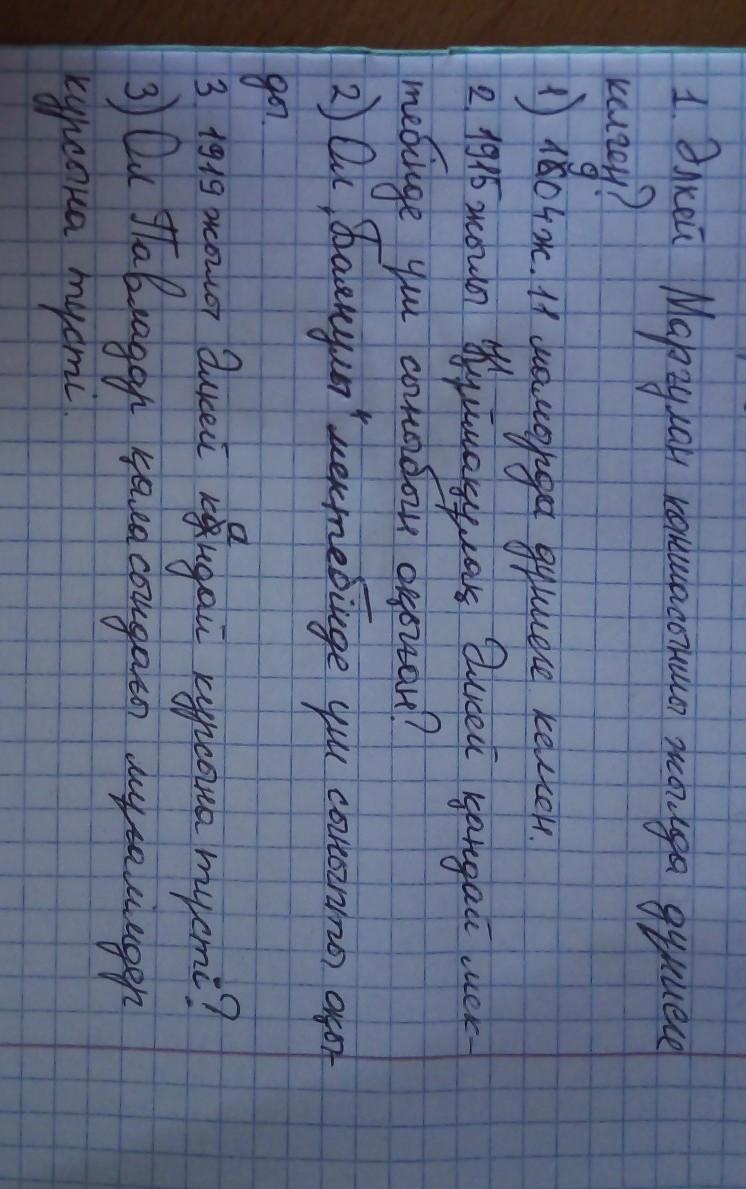 1. Әлкей Марғұлан каншасыншы жылда дүниеге
келген?
1) 1904ж. 11 мамырда дүниеге келген.
2. 1915 жылы Әлкей қандай мек-
тебінде үш сыныбын оқыған?
2) Ол "Баянаулы" мектебінде үш сыныпты оқы-
ды.
3. 1919 жылы Әлкей кандай курсына түсті?
3) Ол Павладар қаласындағы мұғалімдер
курсына түсті.